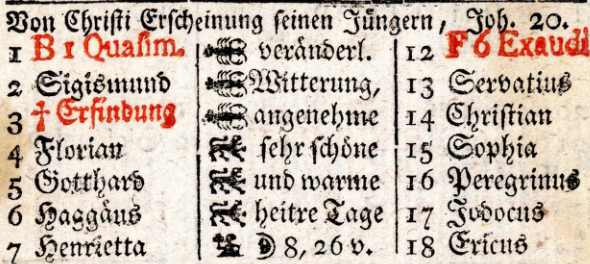 Von Christi Erscheinung seinen Jüngern, Joh. 20.
1 B 1 Quasim. veränderl. 12 F 6 Exaudi
2 Sigismund Witterung, 13 Servatius
3 † Erfindung angenehme 14 Christian
4 Florian sehr schöne 15 Sophia
5 Gotthard und warme 16 Peregrinus
6 Haggäus heitre Tage 17 Jodocus
7 Henrietta ☽ 8, 26 v. 18 Ericus